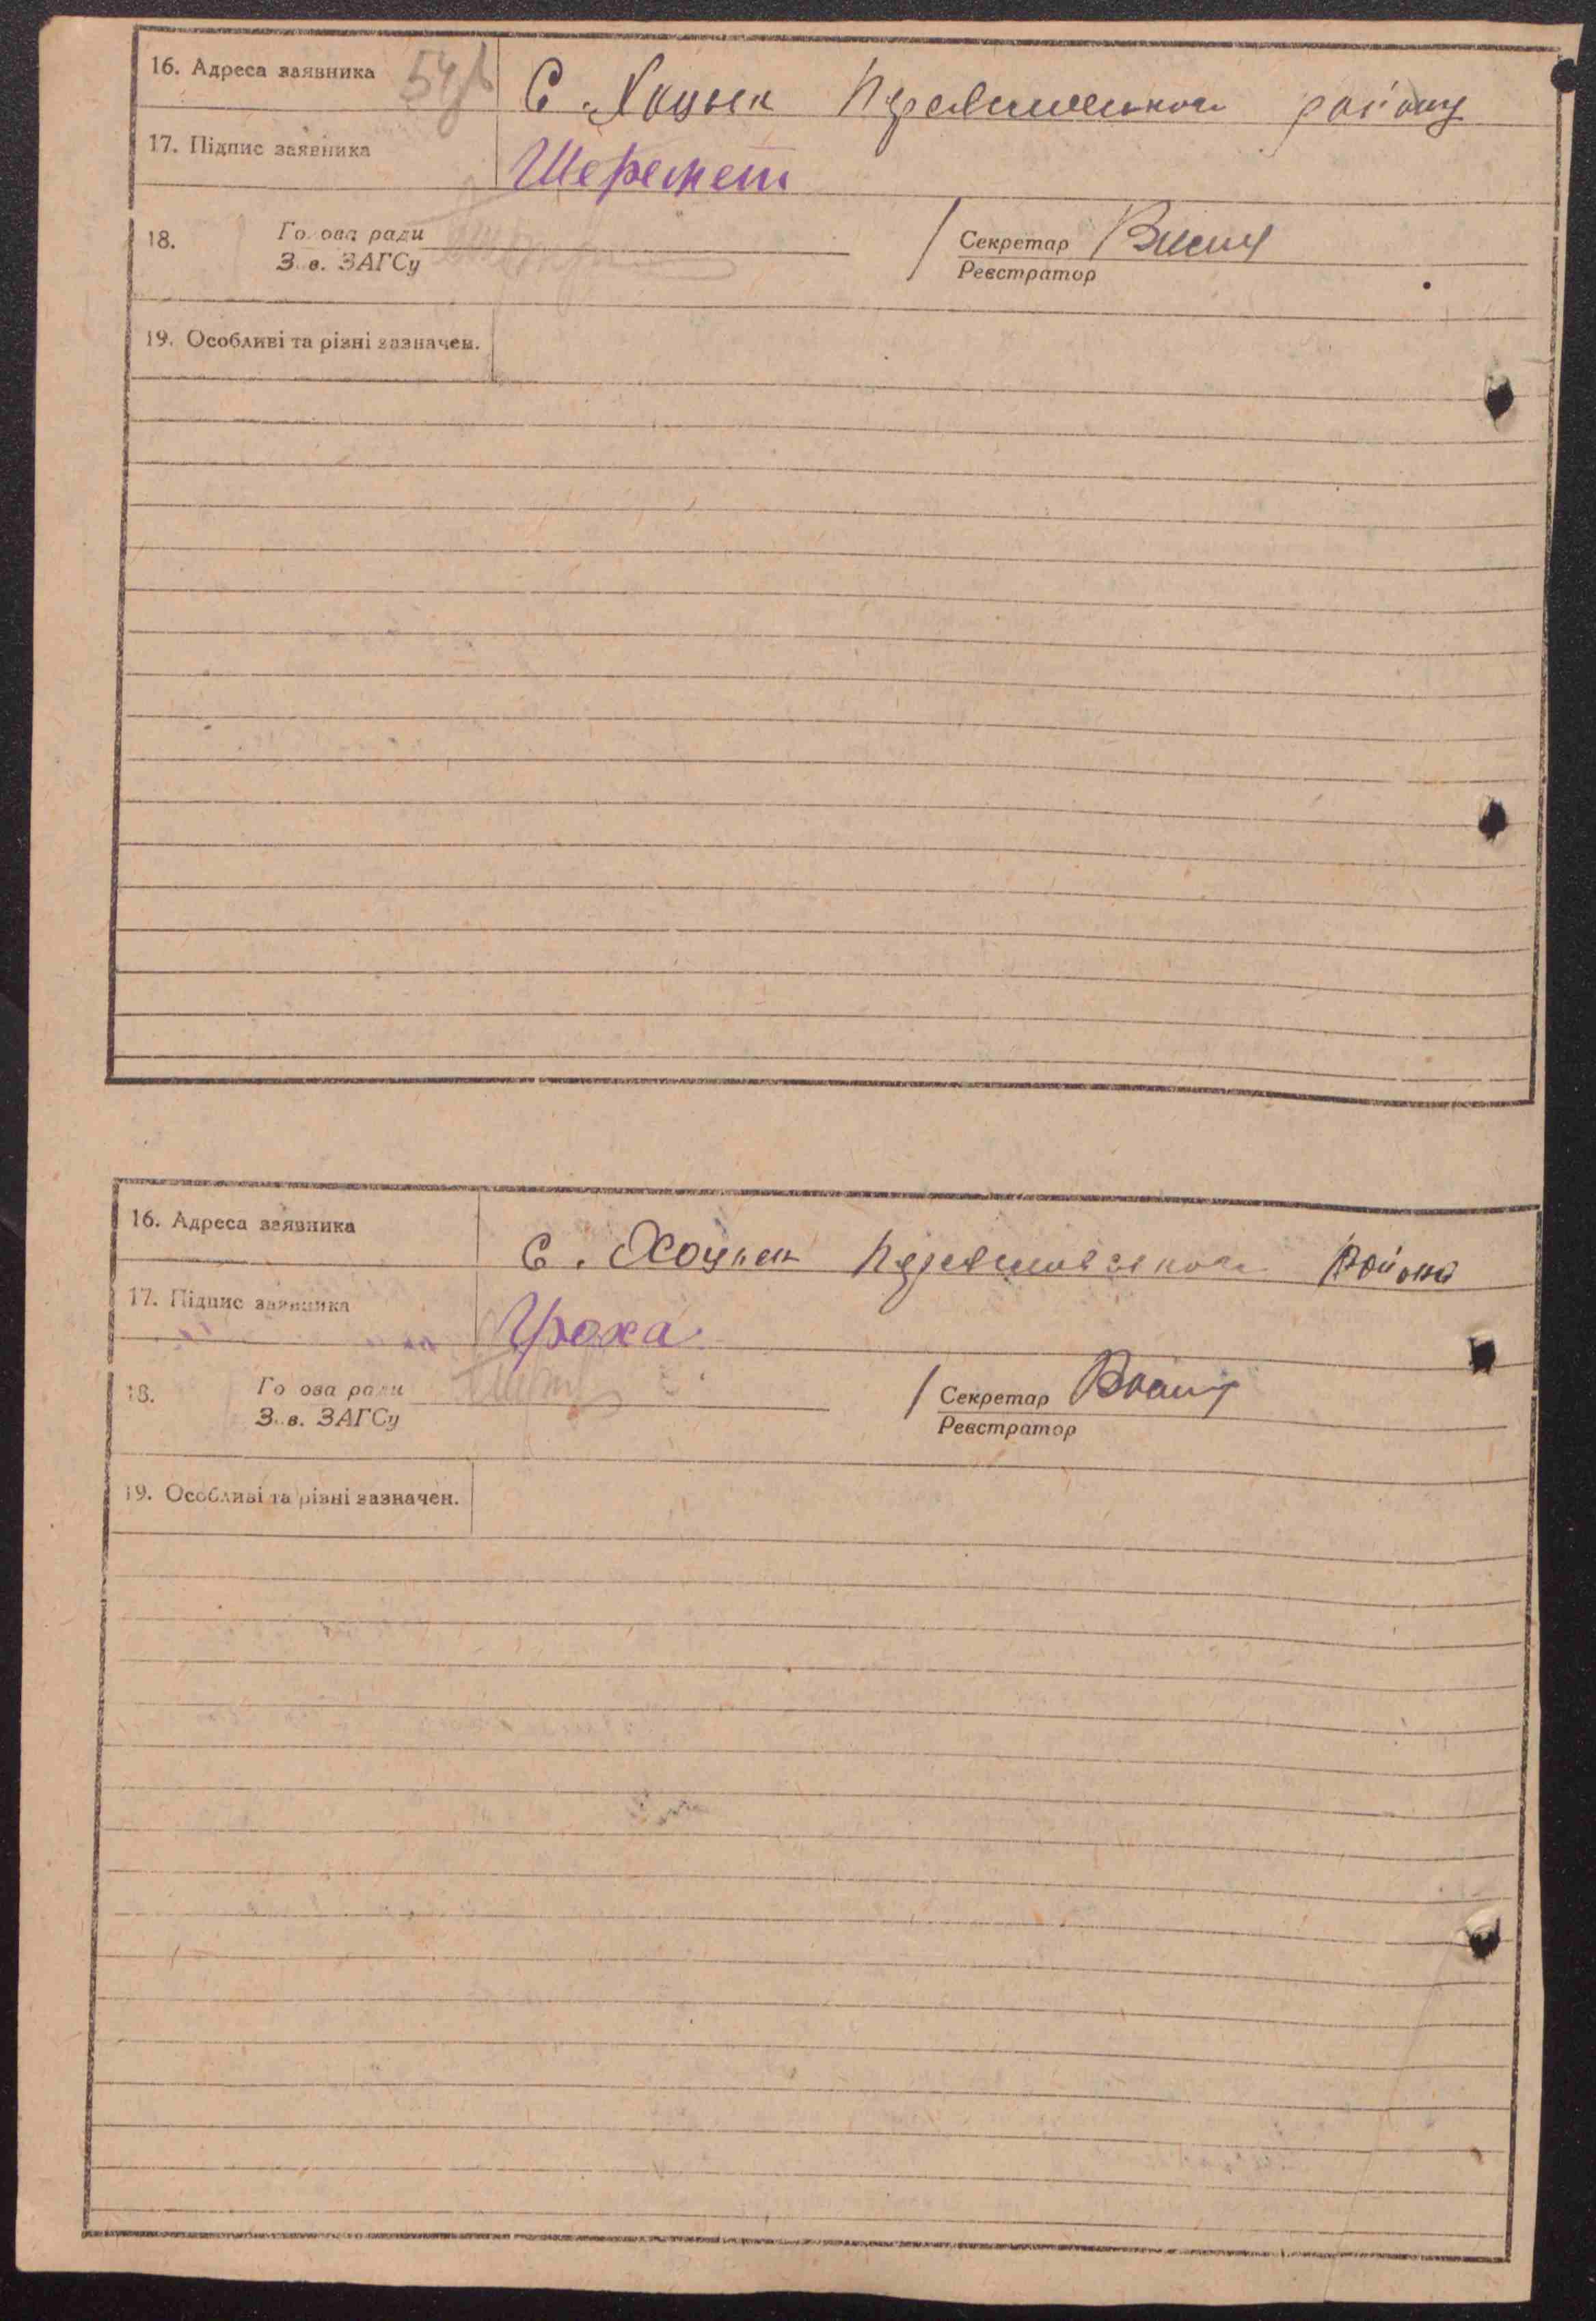 16. Адреса заявника С. Хоцьки Переяславського району
17. Підпис заявника Шеремет
18. Голова ради Секретар
Зав. ЗАГСу Реєстратор
19. Особливі та різні зазначен.
16. Адреса заявника С. Хоцьки Переяславського району
17. Підпис заявника
18. Голова ради Секретар
Зав. ЗАГСу Реєстратор
19. Особливі та різні зазначен.